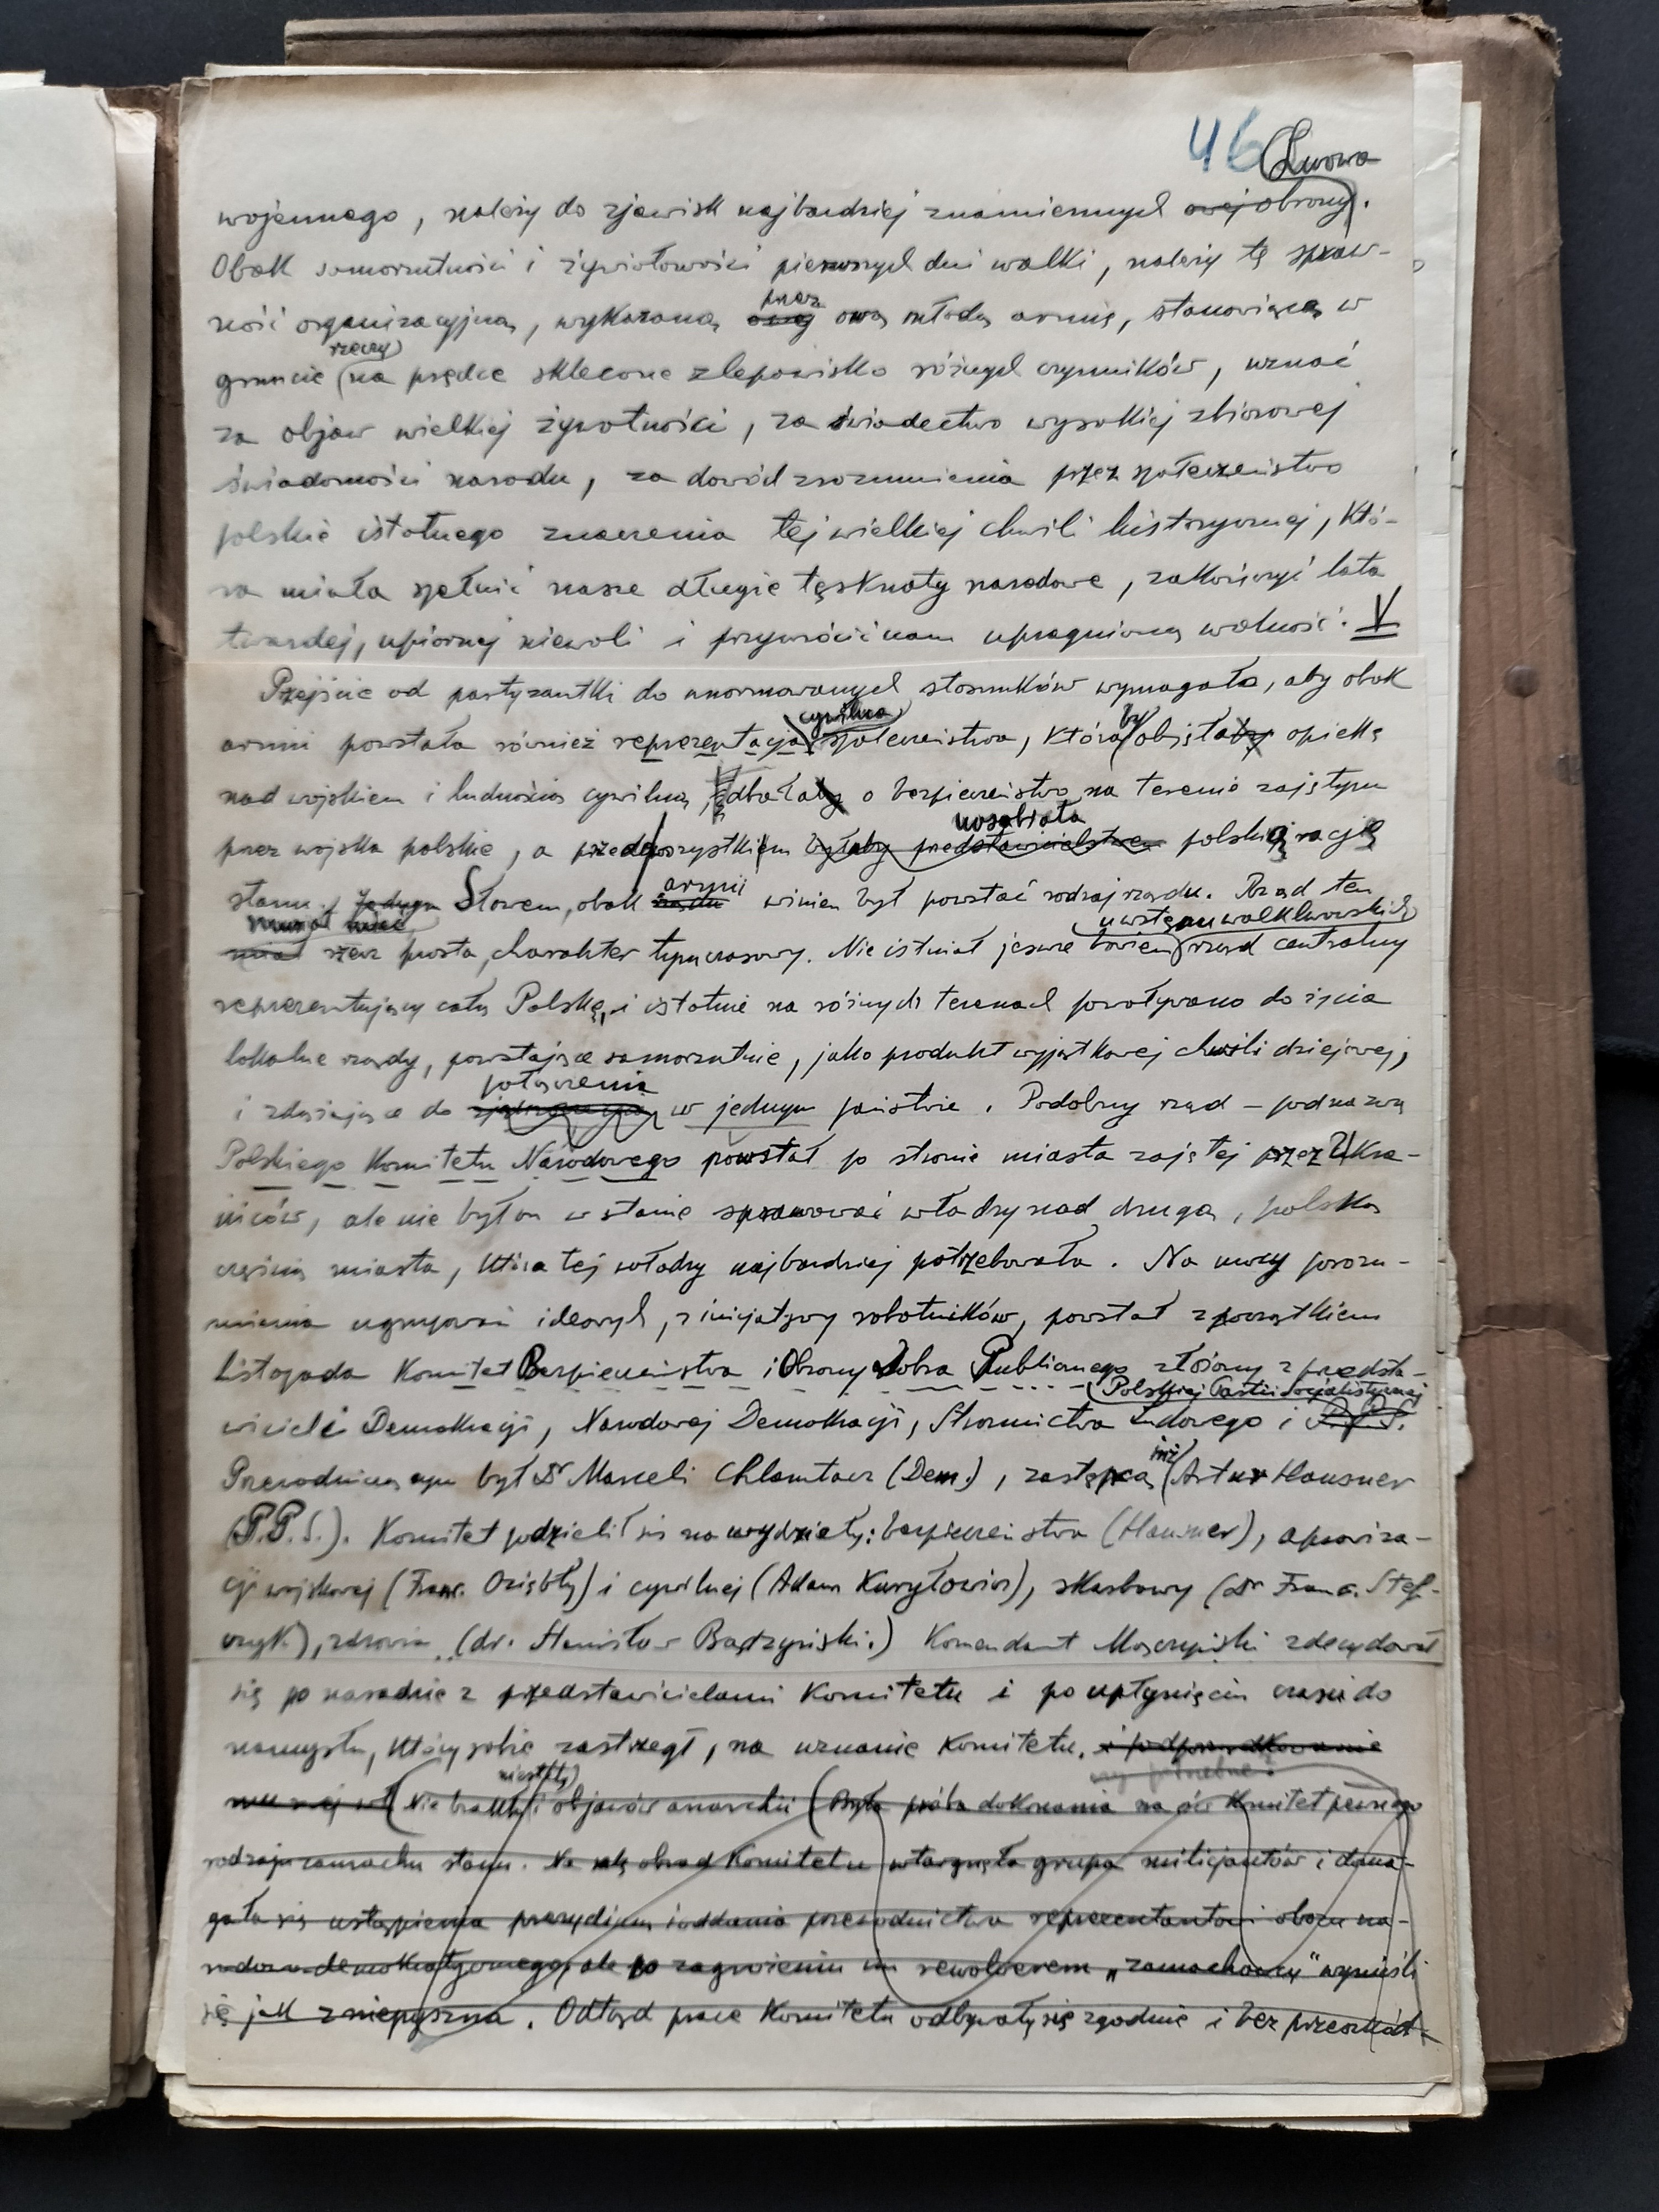 46 Lwowa
wojennego, należy do zjawisk najbardziej znamiennych owej obrony.
Obok samorzutności i żywiołowości pierwszych dni walki, należy tę spraw-
ność organizacyjną, wykazaną przez ową młodą armię, stanowiącą w
gruncie rzeczy na prędce sklecone zlepowisko różnych czynników, uznać
za objaw wielkiej żywotności, za świadectwo wysokiej zbiorowej
świadomości narodu, za dowód zrozumienia przez społeczeństwo
polskie istotnego znaczenia tej wielkiej chwili historycznej, któ-
ra miała spełnić nasze długie tęsknoty narodowe, zakończyć lata
twardej, upiornej niewoli i przywrócić nam upragnioną wolność. V
Przejście od partyzantki do unormowanych stosunków wymagało, aby obok
armii powstała również reprezentacja cywilna społeczeństwa, która by objęłaby opiekę
nad wojskiem i ludnością cywilną, dbałaby o bezpieczeństwo na terenie zajętym
przez wojska polskie, a przedewszystkiem byłaby przedstawicielstwem uosabiała polską rację
stanu. Jednym Słowem, obok rządu armii winien był powstać rodzaj rządu. Rząd ten
miał musiał mieć rzecz prosta, charakter tymczasowy. Nie istniał jeszcze bowiem u wstępu walk lwowskich rząd centralny
reprezentujący całą Polskę, i istotnie na różnych terenach powoływano do życia
lokalne rządy, powstające samorzutnie, jako produkt wyjątkowej chwili dziejowej,
i zdążające do połączenia w jednym państwie. Podobny rząd – pod nazwą
Polskiego Komitetu Narodowego powstał po stronie miasta zajętej przez Ukra-
ińców, ale nie był on w stanie sprawować władzy nad drugą, polską
częścią miasta, która tej władzy najbardziej potrzebowała. Na mocy porozu-
mienia ugrupowań ideowych, z inicjatywy robotników, powstał z początkiem
Listopada Komitet Bezpieczeństwa i Obrony Dobra Publicznego złożony z przedsta-
wicieli Demokracji, Narodowej Demokracji, Stronnictwa Ludowego i P.P.S. Polskiej Partii Socjalistycznej
Przewodniczącym był Dr Marceli Chlamtacz (Dem.), zastępcą inż Artur Hausner
(P.P.S.). Komitet podzielił się na wydziały: bezpieczeństwa (Hausner), aprowiza-
cji wojskowej (Franc. Oziębły) i cywilnej (Adam Kuryłowicz), skarbowy (Dr Franc. Stef-
czyk), zdrowia (dr. Stanisław Bądzyński.) Komendant Mączyński zdecydował
się po naradzie z przedstawicielami Komitetu i po upłynięciu czasu do
namysłu, który sobie zastrzegł, na uznanie Komitetu. i podporządkowanie
mu się Nie brakło niestety i objawów anarchii Była próba dokonania na ów Komitet pewnego
rodzaju zamachu stanu. Na salę obrad Komitetu wtargnęła grupa milicjantów i doma-
gała się ustąpienia prezydium i oddania przewodnictwa reprezentantowi obozu na-
rodowo-demokratycznego, ale po zagrożeniu im rewolwerem „zamachowcy" wynieśli
się jak z niepyszna. Odtąd prace Komitetu odbywały się zgodnie i bez przeszkód